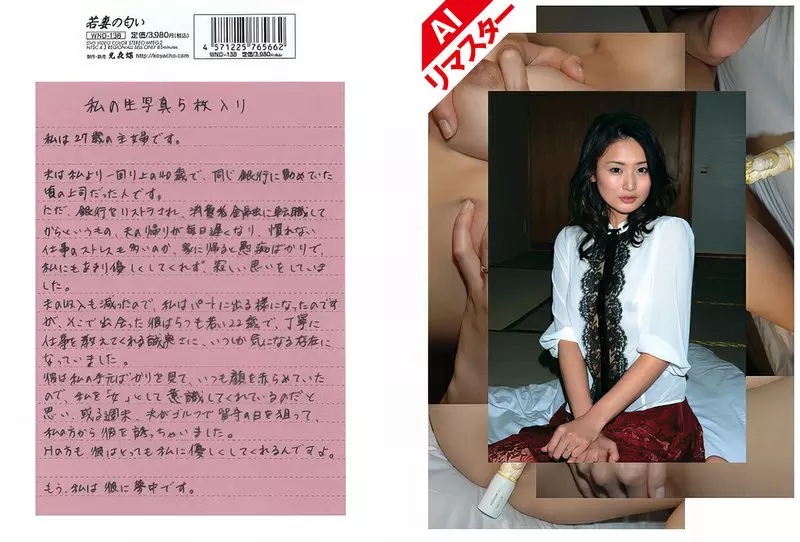 若妻の匂い
WND-138 定価/3,980円(税込)
DVD VIDEO COLOR STEREO MPEG-2
4 571225 765662
WND-138 定価/3,980円(税込)
http://koyacho.com
AI
リマスター
私の生写真5枚入り
私は27歳の主婦です。
夫は私より一回り上の40歳で、同じ銀行に勤めていた
頃の上司だった人です。
ただ、銀行をリストラされ、消費者金融に転職して
からというもの、夫の帰りが毎日遅くなり、慣れない
仕事のストレスも多いのか、家に帰ると愚痴ばかりで、
私にもあまり優しくしてくれず、寂しい思いをしていま
した。
夫の収入も減ったので、私はパートに出る様になったのです
が、そこで出会った彼は5つも若い22歳で、丁寧に
仕事を教えてくれる誠実さに、いつしか気になる存在に
なっていました。
彼は私の手元ばかりを見て、いつも顔を赤らめていた
ので、私を「女」として意識してくれているのだと
思い、或る週末、夫がゴルフで留守の日を狙って、
私の方から彼を誘っちゃいました。
Hの方も彼はとっても私に優しくしてくれるんですよ。
もう、私は彼に夢中です。